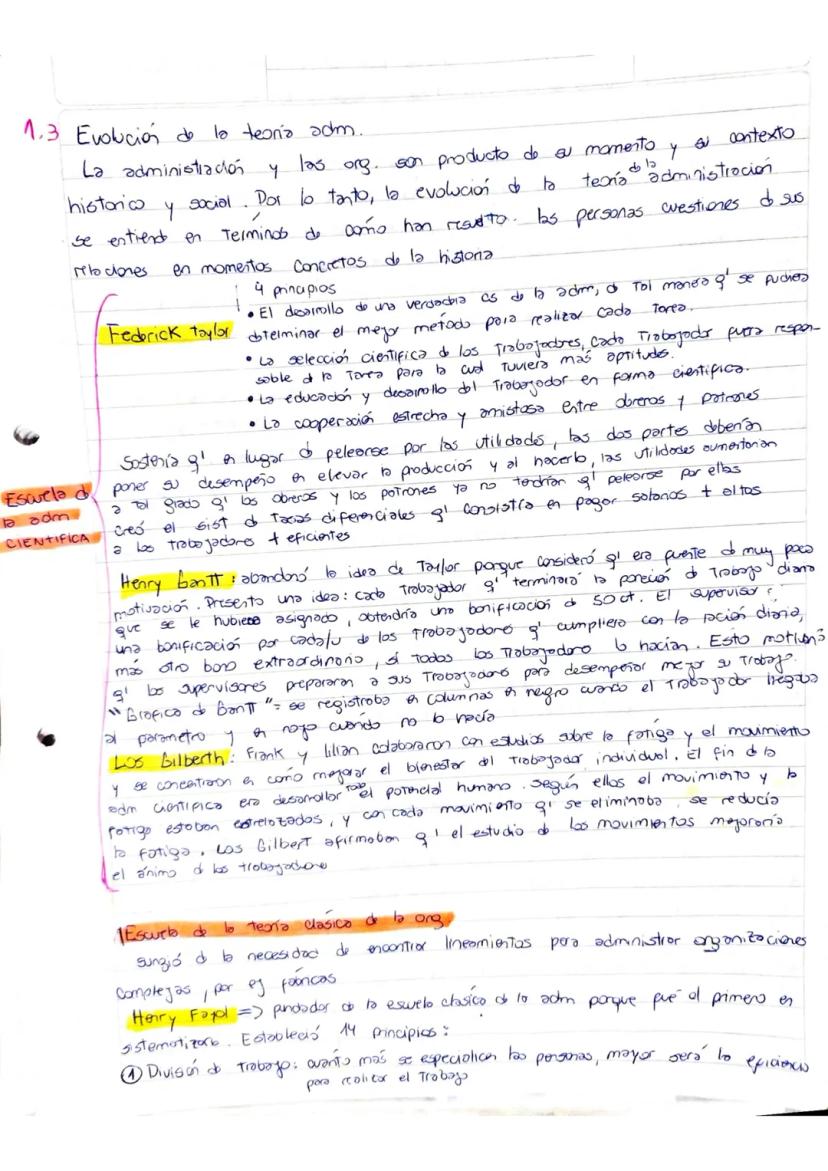 1.3 Evolución de la teoría adm.
La administración y las org. son producto de su momento y su contexto
historico y social. Por lo tanto, la evolución de la teoría de la administración
se entiende en terminos de como han resuelto las personas cuestiones de sus
relaciones en momentos concretos de la historia
4 principios
• El desarrollo de una verdadera cs de la adm, de tal manera q' se pudiera
Federick Taylor
determinar el mejor metodo para realizar cada tarea.
• La selección científica de los trabajadores, cada trabajador fuera respon-
sable de la tarea para la cual tuviera mas aptitudes.
• La educación y desarrollo del trabajador en forma científica.
• La cooperación estrecha y amistosa entre obreros y patrones
Sostenía q' en lugar de pelearse por las utilidades, las dos partes deberían
poner su desempeño en elevar la producción y al hacerlo, las utilidades aumentarian
Escuela de
la adm
CIENTIFICA
a tal grado q' los obreros y los patrones ya no tendrían q' pelearse por ellas
creó el sist de tasas diferenciales q' consistía en pagar salarios + altos
a los trabajadores + eficientes
Henry Gantt: abandonó la idea de Taylor porque consideró q' era fuente de muy poca
motivación. Presento una idea: cada trabajador q' terminara la porción de trabajo diaria
que se le hubiese asignado, obtendría una bonificación de 50 ct. El supervisor:
una bonificación por cada/u de los trabajadores q' cumpliera con la ración diaria,
más otro bono extraordinario, si todos los trabajadores lo hacían. Esto motivó
q' los supervisores prepararan a sus trabajadores para desempeñar mejor su trabajo.
"Grafica de Gantt" = se registraba en columnas en negro cuando el trabajador llegaba
al parametro y en rojo cuando no lo hacía
Los Gilberth: Frank y Lilian colaboraron con estudios sobre la fatiga y el movimiento
y se concentraron en como mejorar el bienestar del trabajador individual. El fin de la
adm cientifica era desarrollar todo el potencial humano. Según ellos el movimiento y la
fatiga estaban entrelazados, y con cada movimiento q' se eliminaba, se reducía
la fatiga. Los Gilbert afirmaban q' el estudio de los movimientos mejoraría
el ánimo de los trabajadores
Escuela de la teoría clásica de la org.
surgió de la necesidad de encontrar lineamientos para administrar organizaciones
complejas, por ej fabricas
Henry Fayol => fundador de la escuela clasica de la adm porque fue el primero en
sistematizarla. Estableció 14 principios:
① Divisón de trabajo: cuánto más se especialicen las personas, mayor será la eficiencia
para realizar el trabajo